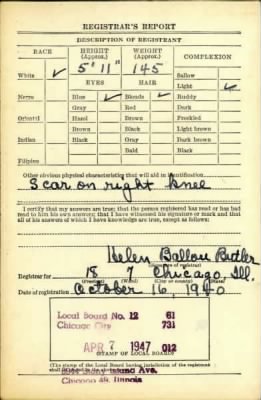 REGISTRAR'S REPORT
DESCRIPTION OF REGISTRANT
RACE HEIGHT (Approx.) WEIGHT (Approx.) COMPLEXION
5' 11" 145
White ✓ Sallow
EYES HAIR Light ✓
Negro Blue ✓ Blonde ✓ Ruddy
Gray Red Dark
Oriental Hazel Brown Freckled
Brown Black Light brown
Indian Black Gray Dark brown
Bald Black
Filipino
Other obvious physical characteristics that will aid in identification
Scar on right knee
I certify that my answers are true; that the person registered has read or has had
read to him his own answers; that I have witnessed his signature or mark and that
all of his answers of which I have knowledge are true, except as follows:
Helen Ballou Butler
(Signature of registrar)
Registrar for 18 7 Chicago, Ill.
(Precinct) (Ward) (City or county) (State)
Date of registration October 16, 1940
Local Board No. 12 61
Chicago City 731
APR 7 1947 012
(STAMP OF LOCAL BOARD)
(The stamp of the Local Board having jurisdiction of the registrant
Ave.
Chicago Illinois